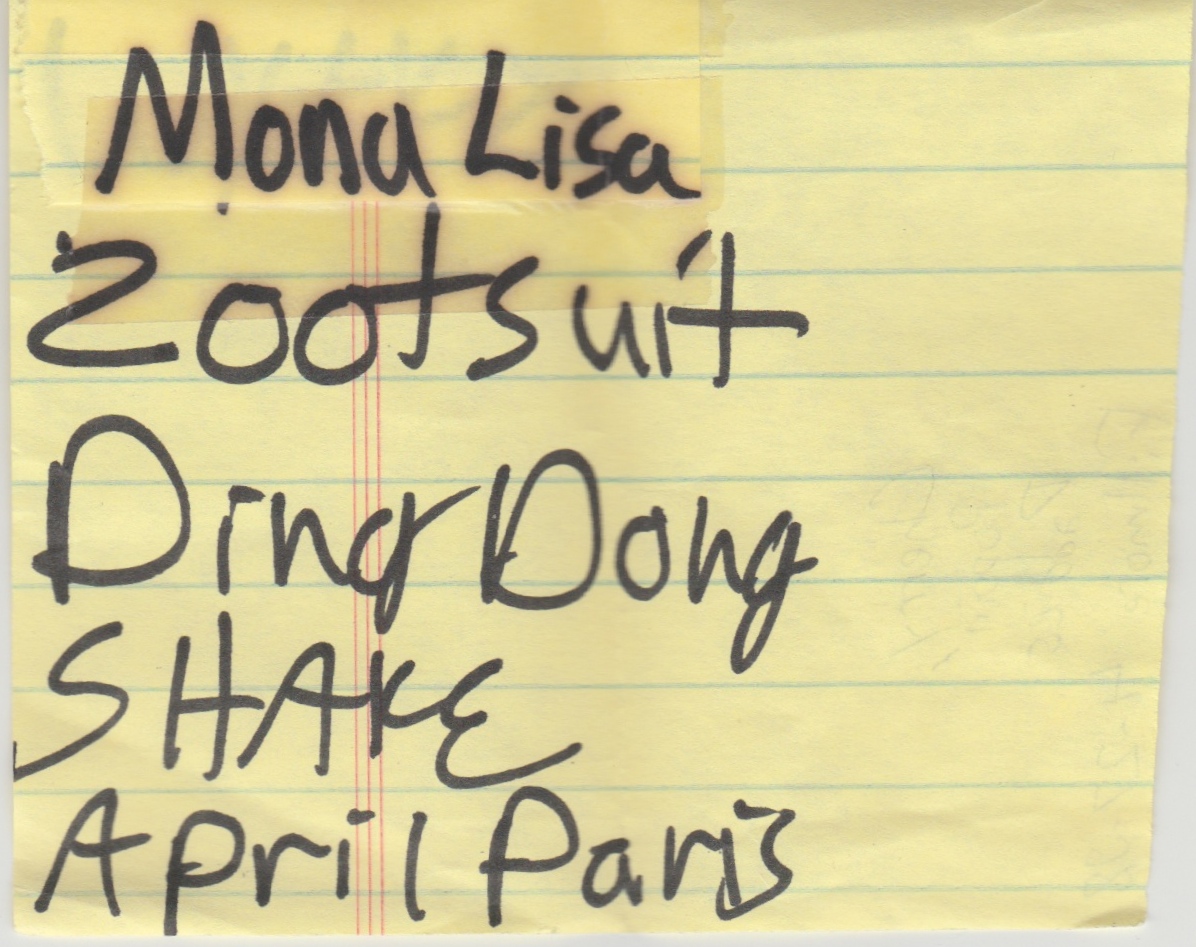 Mona Lisa
Zootsuit
Ding Dong
SHAKE
April Paris